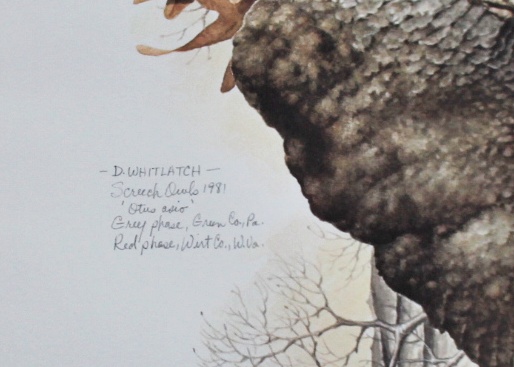 - D. WHITLATCH -
Screech Owls 1981
'Otus asio'
Grey phase, Green Co, Pa.
Red phase, Wirt Co., W.Va.